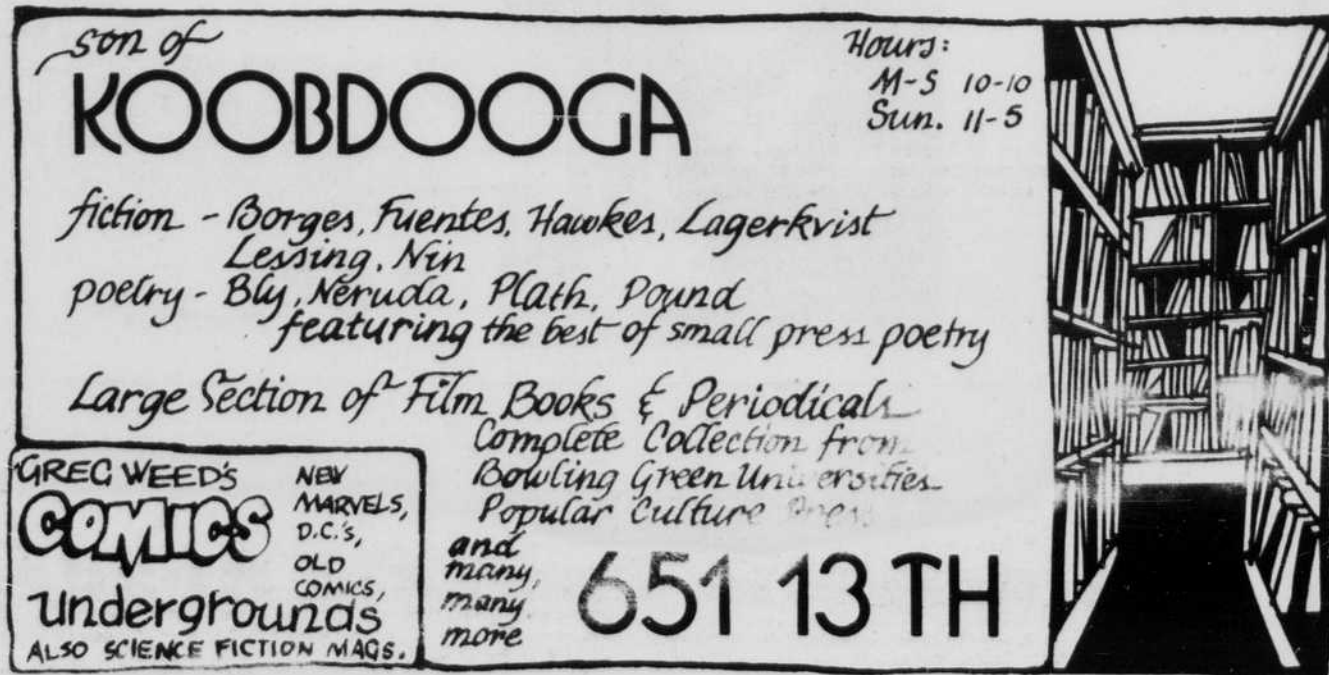 son of
KOOBDOOGA
Hours:
M-S 10-10
Sun. 11-5
fiction - Borges, Fuentes, Hawkes, Lagerkvist
Lessing, Nin
poetry - Bly, Neruda, Plath, Pound
featuring the best of small press poetry
Large Section of Film Books & Periodicals
Complete Collection from
Bowling Green Universities
Popular Culture Press
and
many,
many
more
651 13TH
GREG WEED'S
COMICS
undergrounds
NEW
MARVELS,
D.C.'s,
OLD
COMICS,
ALSO SCIENCE FICTION MAGS.